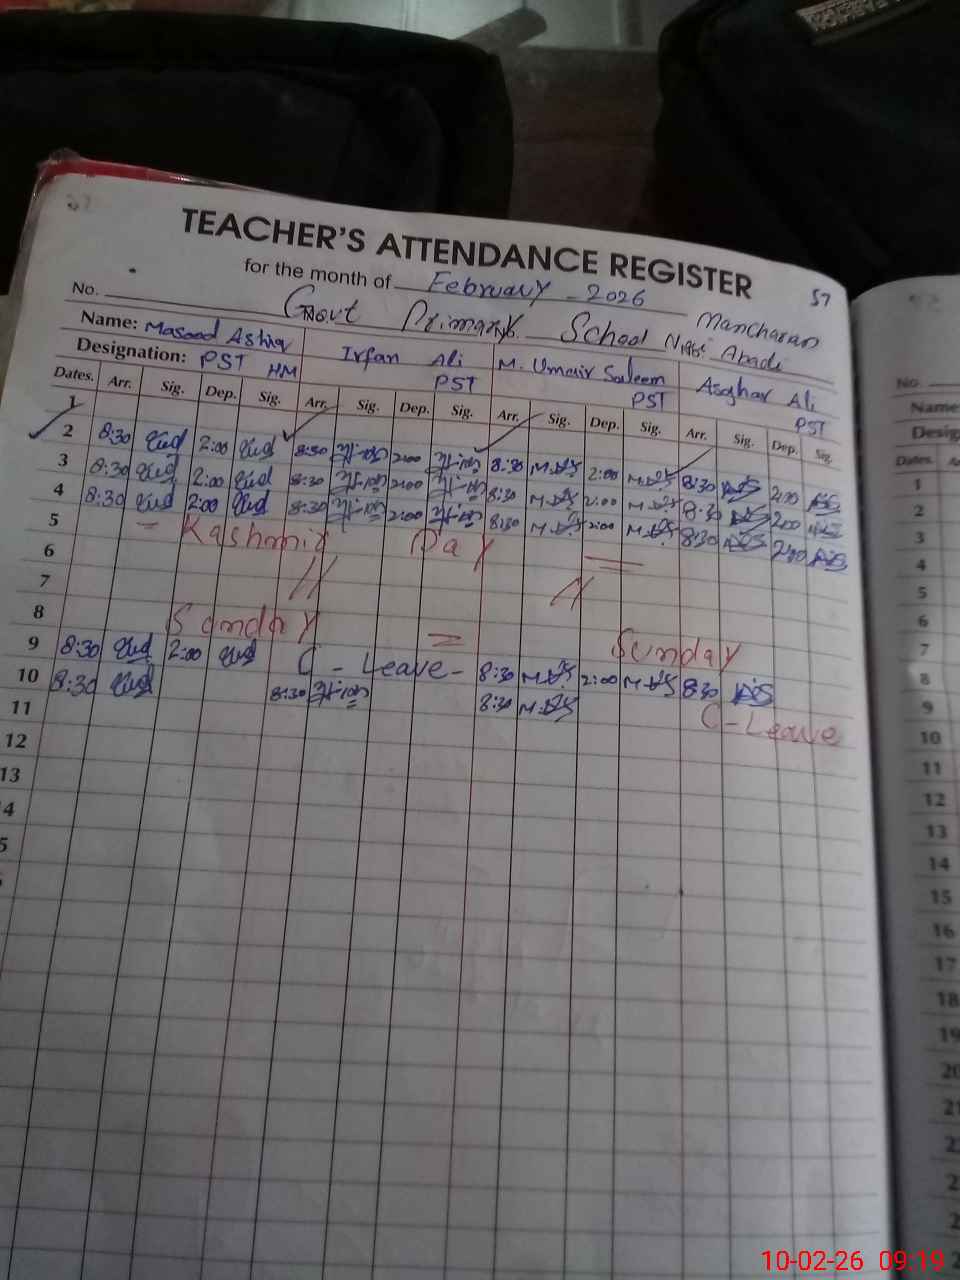 TEACHER'S ATTENDANCE REGISTER
for the month of February - 2026
57
No. Govt Primary School Nabi Abadi Mancharan
Name: Masood Ashiq Irfan Ali M. Umair Saleem Asghar Ali
Designation: PST HM PST PST PST
Dates. Arr. Sig. Dep. Sig. Arr. Sig. Dep. Sig. Arr. Sig. Dep. Sig. Arr. Sig. Dep. Sig.
1
2 8:30 2:00 8:30 2:00 8:30 2:00 8:30 2:00
3 8:30 2:00 8:30 2:00 8:30 2:00 8:30 2:00
4 8:30 2:00 8:30 2:00 8:30 2:00 8:30 2:00
5 - Kashmir Day =
6 // //
7
8 Sunday = Sunday
9 8:30 2:00 C - Leave - 8:30 2:00 8:30
10 8:30 8:30 8:30 C - Leave
11
12
13
4
5
No.
Name
Desig
Dates.
1
2
3
4
5
6
7
8
9
10
11
12
13
14
15
16
17
18
19
20
21
10-02-26 09:19